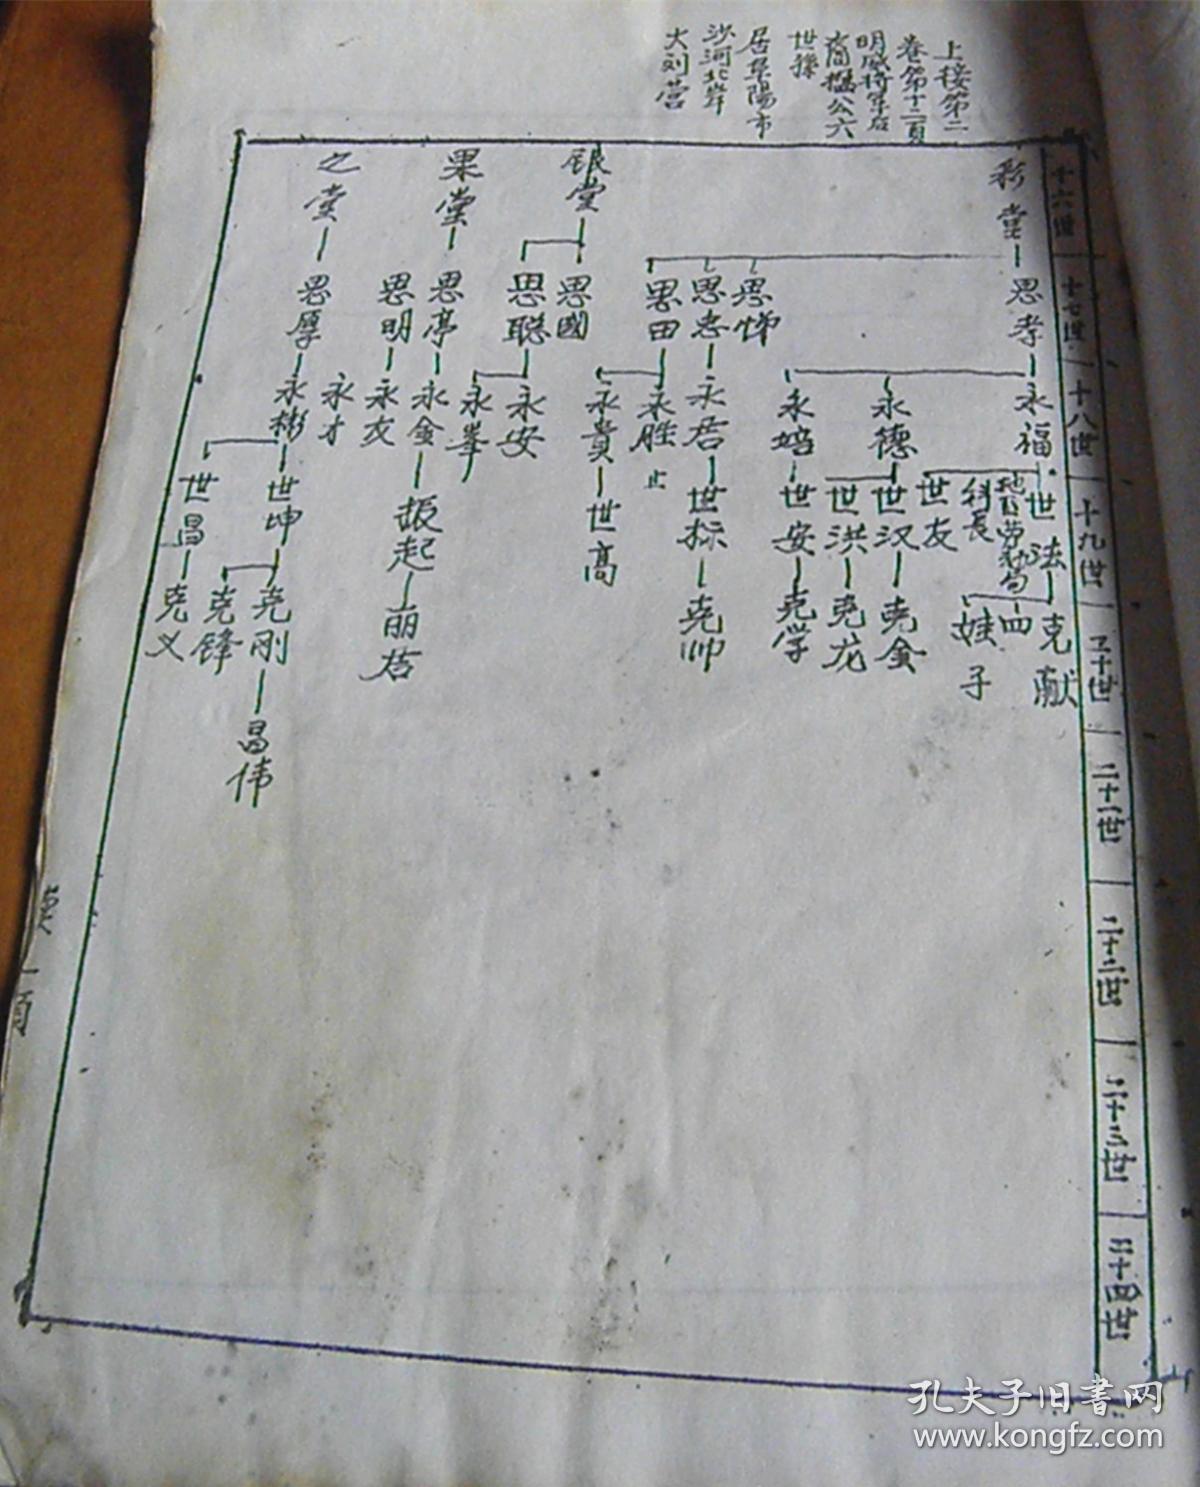 上接第二
卷第十二頁
明威将軍后
世孫
居阜陽市
沙河北岸
大刘营
十六世
十七世
十八世
十九世
二十世
二十一世
二十二世
二十三世
二十四世
彩堂
思孝
永福
世法
地区劳动局
科長
克献
四
娃子
世友
永德
世汉
克金
世洪
克龙
世安
克学
思悌
思忠
永居
世标
克帅
思田
永胜
止
永貴
世高
银堂
思國
思聪
永安
永峯
果堂
思亭
永金
振起
思明
永友
永才
之堂
思厚
永彬
世坤
克刚
昌伟
克锋
世昌
克义
孔夫子旧書网
www.kongfz.com